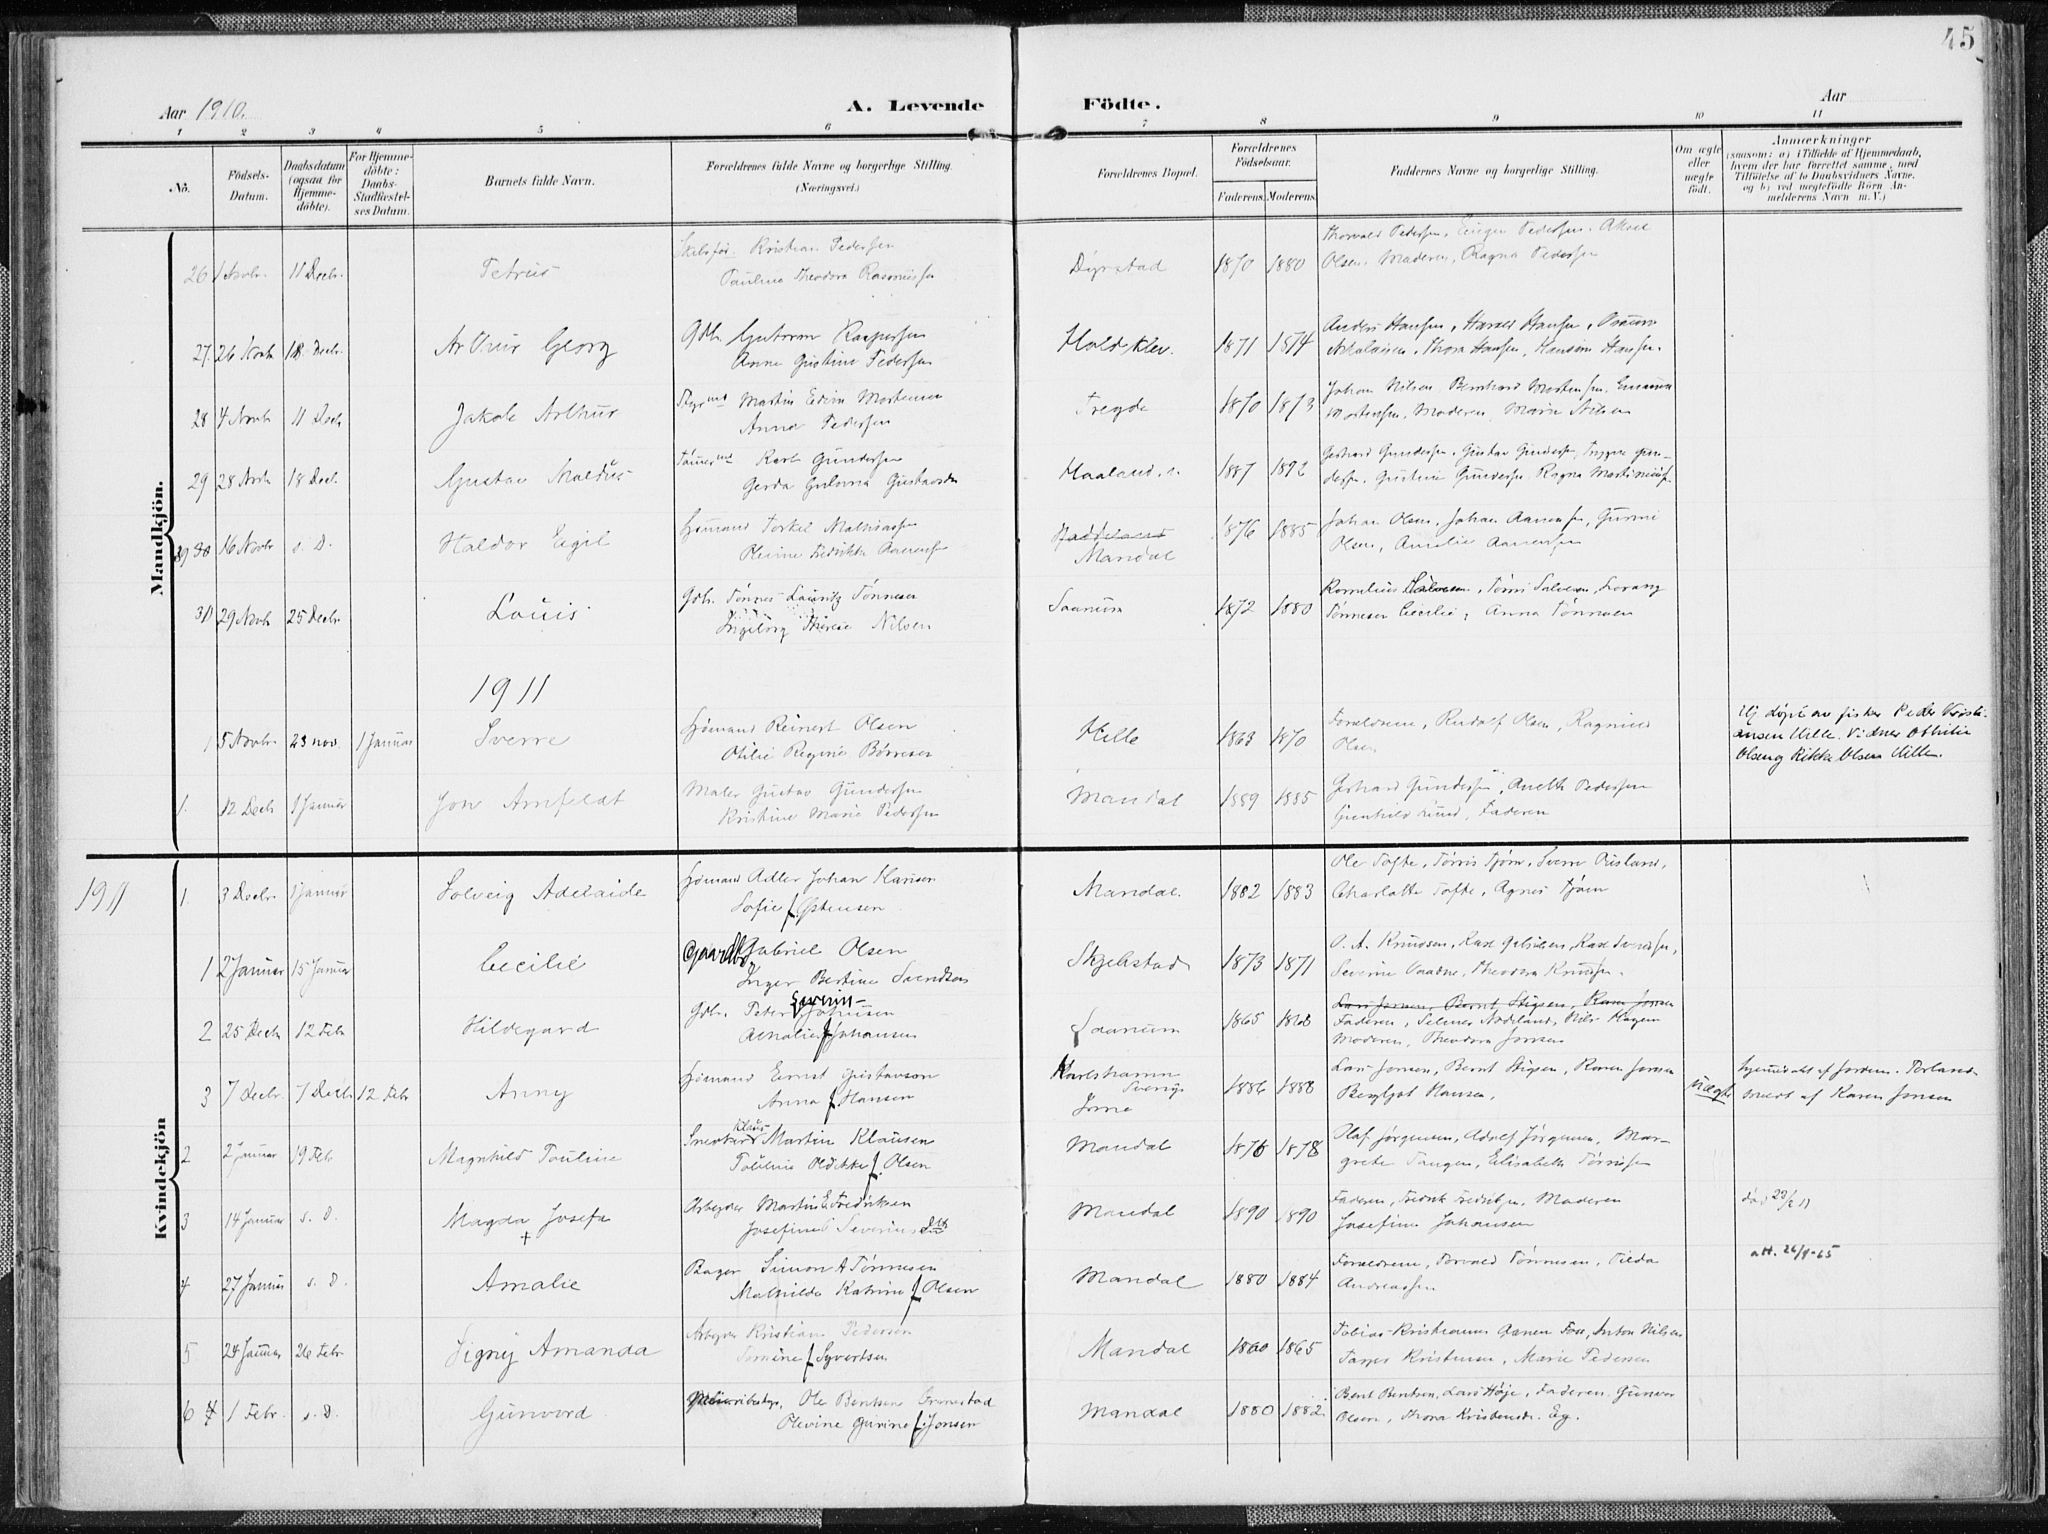 45
Aar 1910.
A. Levende Födte.
Aar
1 2 3 4 5 6 7 8 9 10 11
No.
Födsels-Datum.
Daabsdatum (ogsaa for Hjemme-döbte).
For Hjemme-döbte: Daabs-Stadfæstel-ses Datum.
Barnets fulde Navn.
Forældrenes fulde Navne og borgerlige Stilling. (Næringsvei.)
Forældrenes Bopæl.
Forældrenes Födselsaar.
Faderens. Moderens.
Faddernes Navne og borgerlige Stilling.
Om ægte eller uægte født.
Anmærkninger
(saasom: a) i Tilfælde af Hjemmedaab, hvem der har forrettet samme, med Tilföielse af to Daabsvidners Navne, og b) ved uægtefödte Börn An-melderens Navn m. V.)
Mandkjön.
26 1 Novbr. 11 Decbr. Petrus
Kristian Pedersen
Pauline Theodora Rasmussen
Dyrstad 1870 1880
Thorvald Pedersen, Pedersen. Aksel
Olsen. Moderen, Ragna Pedersen
27 26 Novbr 18 Decbr. Arthur Georg
Gdb. Guttorm Kaspersen
Anne Gustine Pedersen
Holdsklev. 1871 1874
Anders Hansen, Harald Hansen,
Nikolaisen, Thora Hansen, Hansine Hansen.
28 4 Novbr 11 Decb Jakob Arthur
Styrmd Martin Edvin Mortensen
Anna Pedersen
Tregde 1870 1873
Johan Nilsen Bernhard Mortensen,
Mortensen, Moderen, Marie Nilsen
29 28 Novbr 18 Decb. Gustav Maldus
Tømmermd Karl Gundersen
Gerda Gustavsen
Haaland. 1887 1892
Gerhard Gundersen, Gustav Gundersen, Trygve Gun-
dersen. Gustine Gundersen Ragna
30 16 Novbr s. D. Haldor Egil
Sjømand Torkel Mathiassen
Aanensen
Mandal 1876 1885
Johan Olsen, Johan Aanensen, Gurine
Olsen, Amalie Aanensen
31 29 Novbr 25 Decbr. Louis
Gdb. Tønnes Lauritz Tønnesen
Ingeborg Therese Nilsen
Saanum 1872 1880
Kornelius Salvesen, Tørris Salvesen,
Tønnesen Cecilie, Anna Tønnesen
1911
1 5 Novbr. 23 nov. 1 Januar Sverre
Sjømand Reinert Olsen
Otilie Regine Børresen
Hille 1863 1870
Forældrene, Rudolf Olsen, Ragnild
Olsen
Hj døpt av fisker Peder Kristi-
ansen Hille. Vidner Othilie
Olsen og Rikke Olsen Hille.
1. 12 Decb 1 Januar Jon Arnfeldt
Maler Gustav Gundersen
Kristine Marie Pedersen
Mandal 1889 1885
Gerhard Gundersen, Aneth Pedersen
Gunhild Lund, Faderen
Kvindekjön
1911
1 3 Decbr. 1 Januar Solveig Adelaide
Sjømand Adler Johan Hansen
Sofie f. Østensen
Mandal. 1882 1883
Ole Tofte, Tørris Tjøm, Sverre Risland,
Charlotte Tofte, Agnes Tjøm
1 2 Januar 15 Januar Cecilie
Gaardbr Gabriel Olsen
Inger Bertine Svendsen
Skjebstad 1873 1871
O. A. Knudsen, Karl Gabrielsen, Karl Svendsen,
Severine Vaadne, Theodora Knudsen.
2 25 Decbr 12 Febr Hildegard
Gdb. Peter Severin Johnsen
Amalie f. Johansen
Saanum 1865 1868
Lars Jonsen, Bernt Stigsen, Karen Jonsen
Faderen, Selmer Nodeland, Nils Hagen
Moderen, Theodora Jonsen
3 7 Decbr. 7 Decb 12 Febr Anny
Sjømand Ernst Gustavson
Anna f. Hansen
Karlshamn Sverige
1886 1888
Lars Jonsen, Bernt Stigsen, Karen Jonsen
Bergljot Hansen.
uægte
Hjemmedøbt af Jordem.
af Karen Jonsen
2 2 Januar 19 Febr Magnhild Pauline
Snedker Klaus Martin Klausen
f. Olsen
Mandal 1876 1878
Olaf Jørgensen, Adolf Jørgensen, Mar-
grete Tangen, Elisabeth Tønnesen
3 14 Januar s. D. Magda Josefa
+
Arbeyder Martin E. Fredriksen
Josefine Severinsdtr
Mandal 1890 1890
Faderen, Fredrik Fredriksen, Moderen
Josefine Johansen
død 23/2 11
4 27 Januar s. D. Amalie
Bager Simon A Tønnesen
Mathilde Katrine f. Olsen
Mandal 1880 1884
Forældrene, Torvald Tønnesen, Tilda
Andreassen
att. 26/8-65
5 24 Januar 26 Febr. Signy Amanda
Arbeyder Kristian Pedersen
Tomine f. Syvertsen
Mandal 1860 1865
Tobias Kristensen Aanen Foss, Anton Nilsen
Kristensen, Marie Pedersen
6 1 Febr. s. D. Gunvord
Ole Bentsen Grønestad
Olevine Gurine f. Jonsen
Mandal 1880 1882
Bent Bentsen, Lars Høje, Faderen. Gunvor
Olsen, Thora Kristensen. Eg.